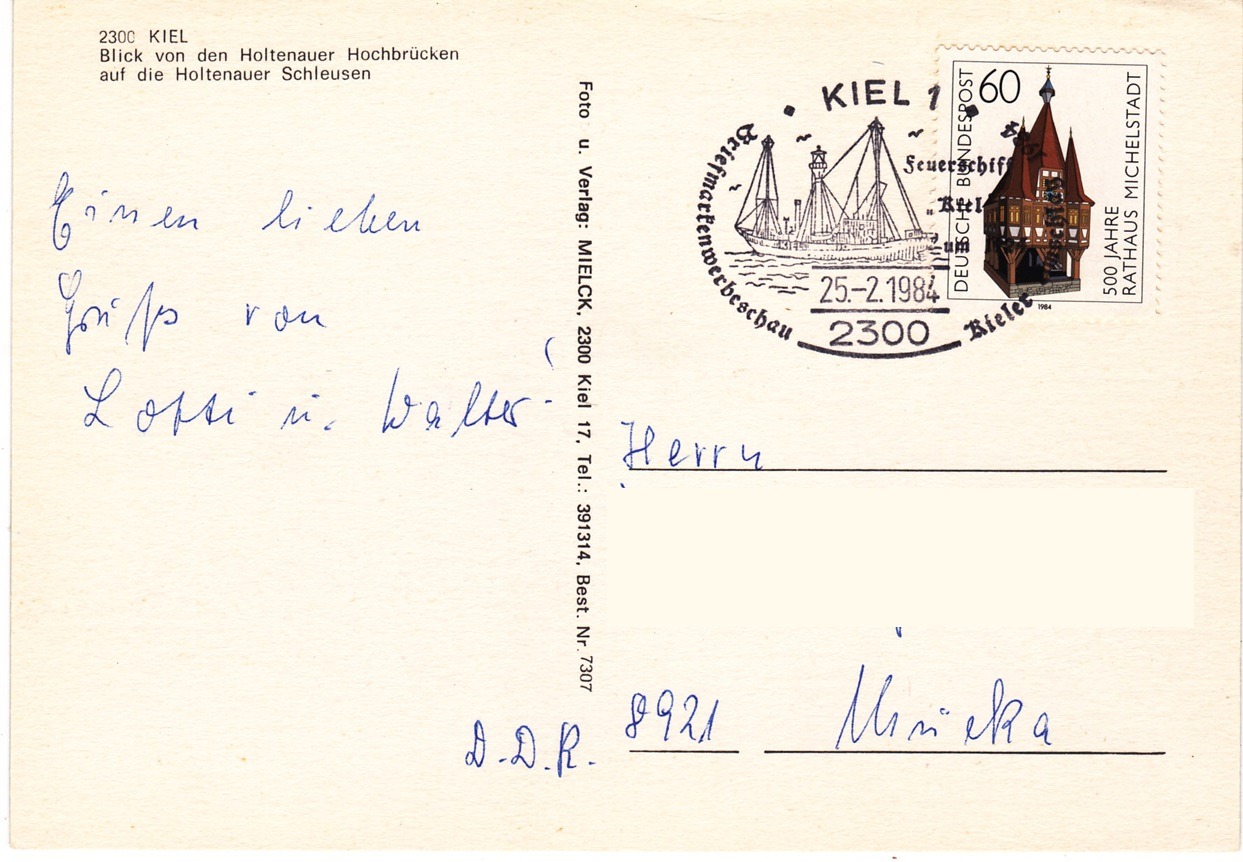 2300 KIEL
Blick von den Holtenauer Hochbrücken
auf die Holtenauer Schleusen
Einen lieben
Gruß von
Lotti u. Walter
Foto u. Verlag: MIELCK, 2300 Kiel 17, Tel.: 391314, Best. Nr. 7307
KIEL 1
Briefmarkenwerbeschau
Feuerschiff
"Kiel"
um
25.-2.1984
2300
Kieler
60
DEUTSCHE BUNDESPOST
500 JAHRE
RATHAUS MICHELSTADT
1984
Herrn
D.D.R. 8921 Mücka